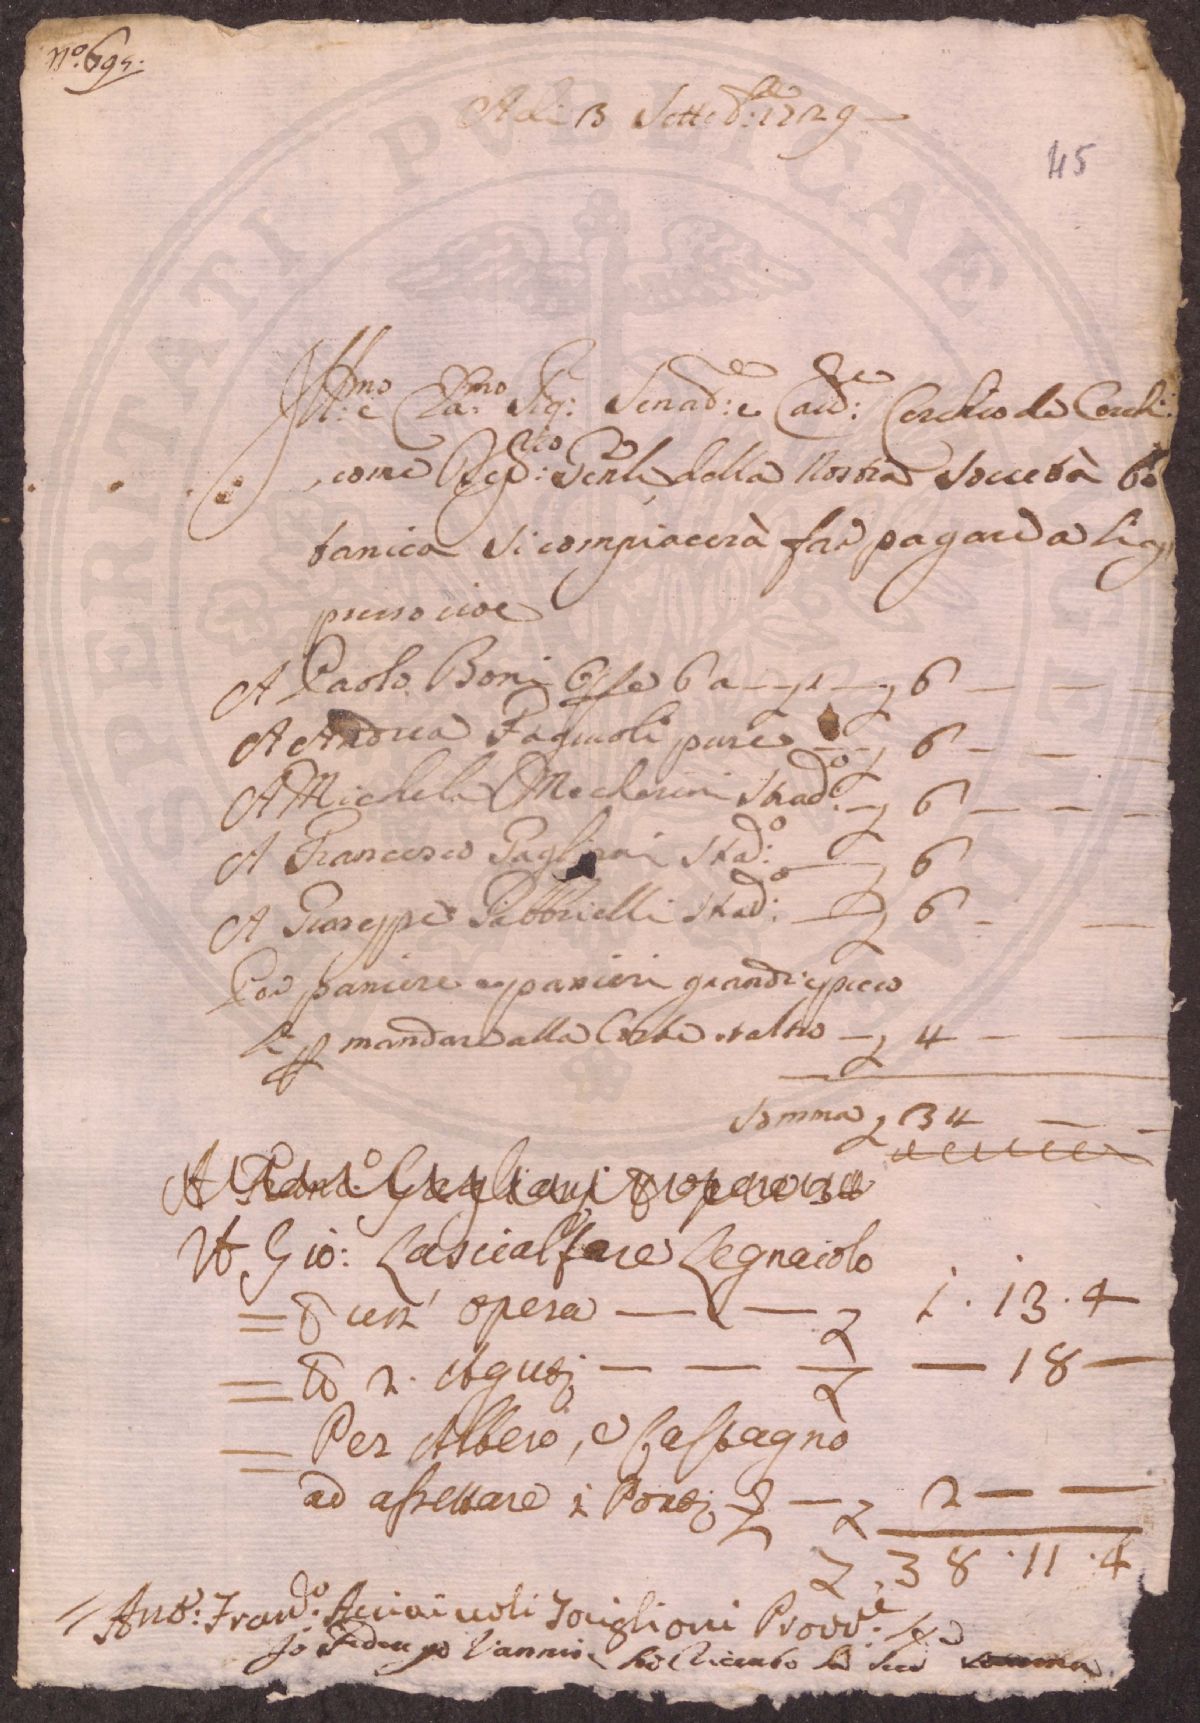 No. 695.
A di 13 Sette.bre 1729
45
Ill.mo e Cla.mo Sig: Senad:e e Cav:re Cerchio de Cerchi
come Seg:rio Gen.le della Nostra Società Bo
tanica si compiacerà far pagare a
presso cioe
A Paolo Boni Op.e 6 a — 1 — £ 6 — — —
A Andrea Fagiuoli pure — £ 6 — — —
A Michele Mecherini Strad:o — £ 6 — — —
A Francesco Gagliani Stad:o — £ 6
A Giuseppe Gabbrielli Stad:o — £ 6 — —
Per paniere e panieri grandi e picco
li p mandare alla Corte et altro — £ 4 — —
Somma £ 34 — —
A Franc:o Gagliani p opere
A Gio: Lascialfare Legnaiolo
= p un' opera — — £ 1 . 13 . 4
= p 2. Aguti — — £ — 18 —
= Per Albero, e Castagno
ad assettare i Ponti — £ 2 — —
£ 38 . 11 . 4
Ant:o Fran:co Acciaiuoli Toriglioni Provv:re
Io Vannini ho ricevuto la sud.a somma